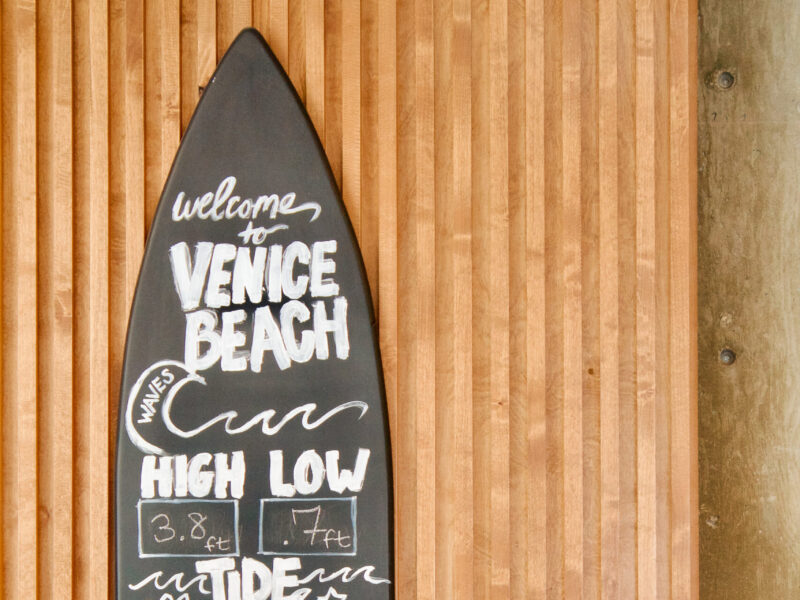 welcome
to
VENICE
BEACH
WAVES
HIGH LOW
3.8 ft .7 ft
TIDE